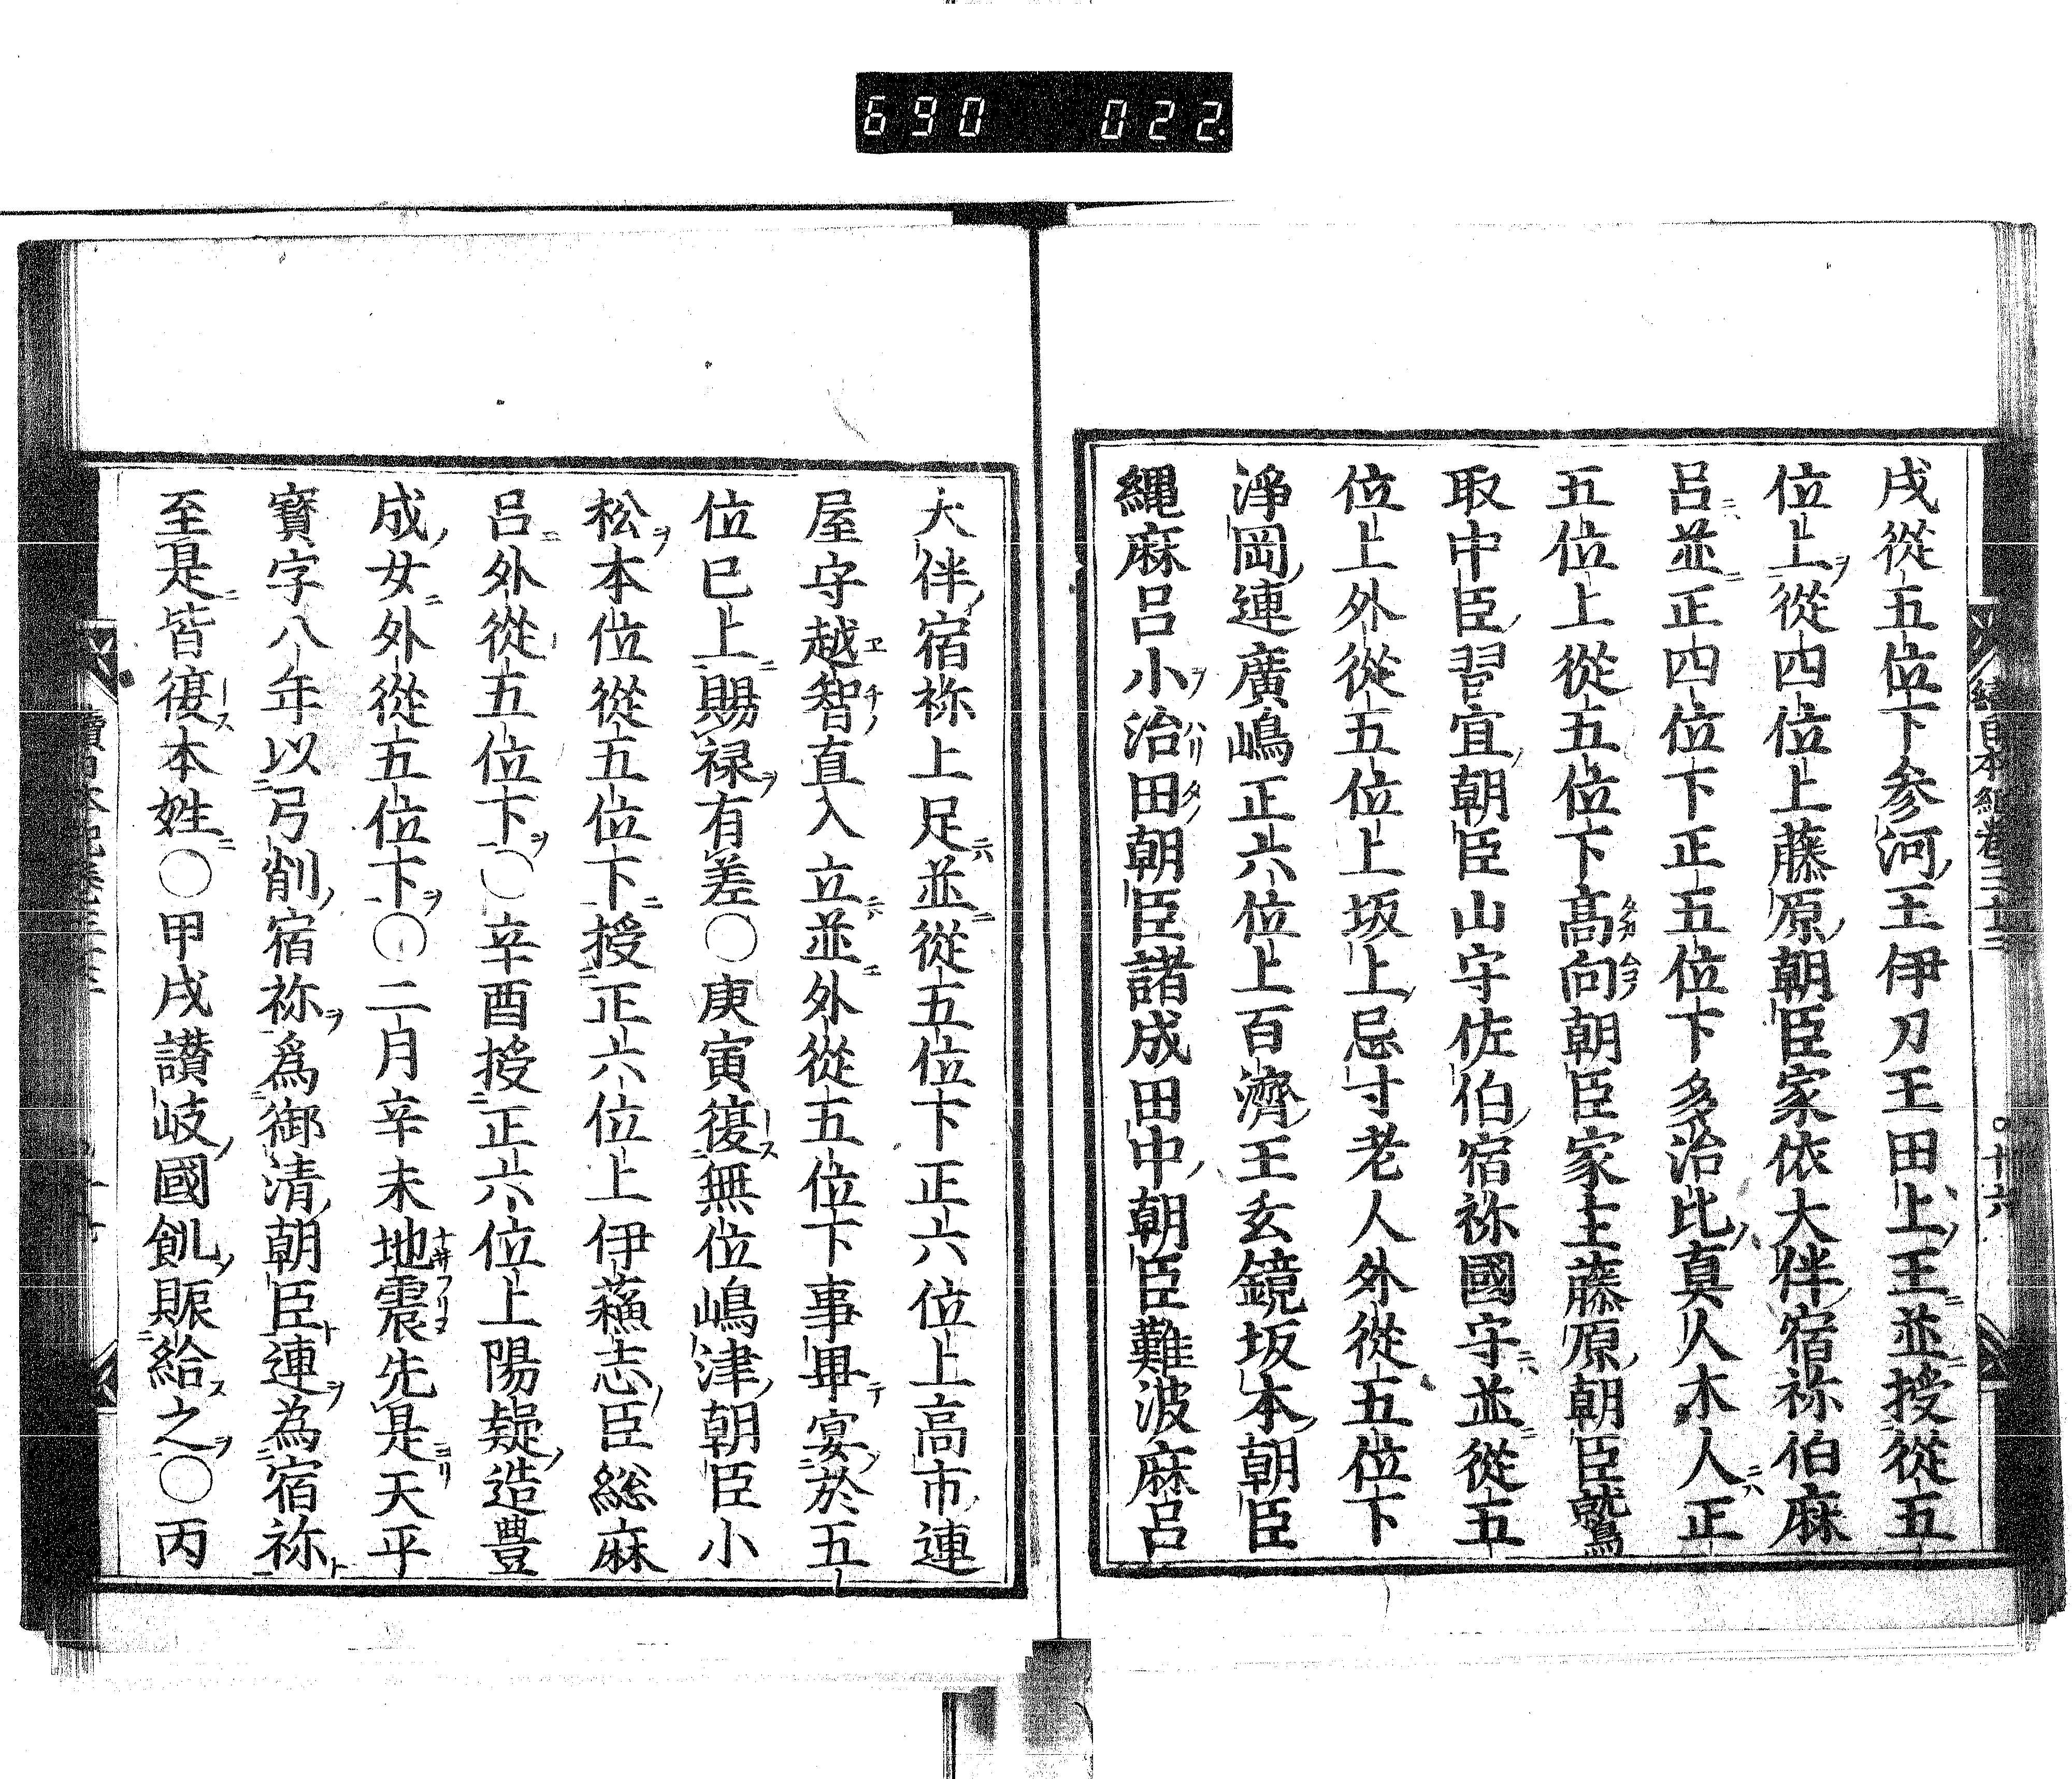 690 022
戌從五位下参河王伊刀王田上王並授從五
位上從四位上藤原朝臣家依大伴宿祢伯麻
呂並正四位下正五位下多治比真人木人正
五位上從五位下髙向朝臣家主藤原朝臣鷲
取中臣習宜朝臣山守佐伯宿祢國守並從五
位上外從五位上坂上忌寸老人外從五位下
淨岡連廣嶋正六位上百濟王玄鏡坂本朝臣
縄麻呂小治田朝臣諸成田中朝臣難波麻呂
大伴宿祢上足並從五位下正六位上高市連
屋守越智直入立並外從五位下事畢宴於五
位已上賜禄有差〇庚寅復無位嶋津朝臣小
松本位從五位下授正六位上伊蘓志臣総麻
呂外從五位下〇辛酉授正六位上陽疑造豊
成女外從五位下〇二月辛未地震先是天平
寳字八年以弓削宿祢爲御清朝臣連為宿祢
至是皆復本姓〇甲戌讃岐國飢賑給之〇丙